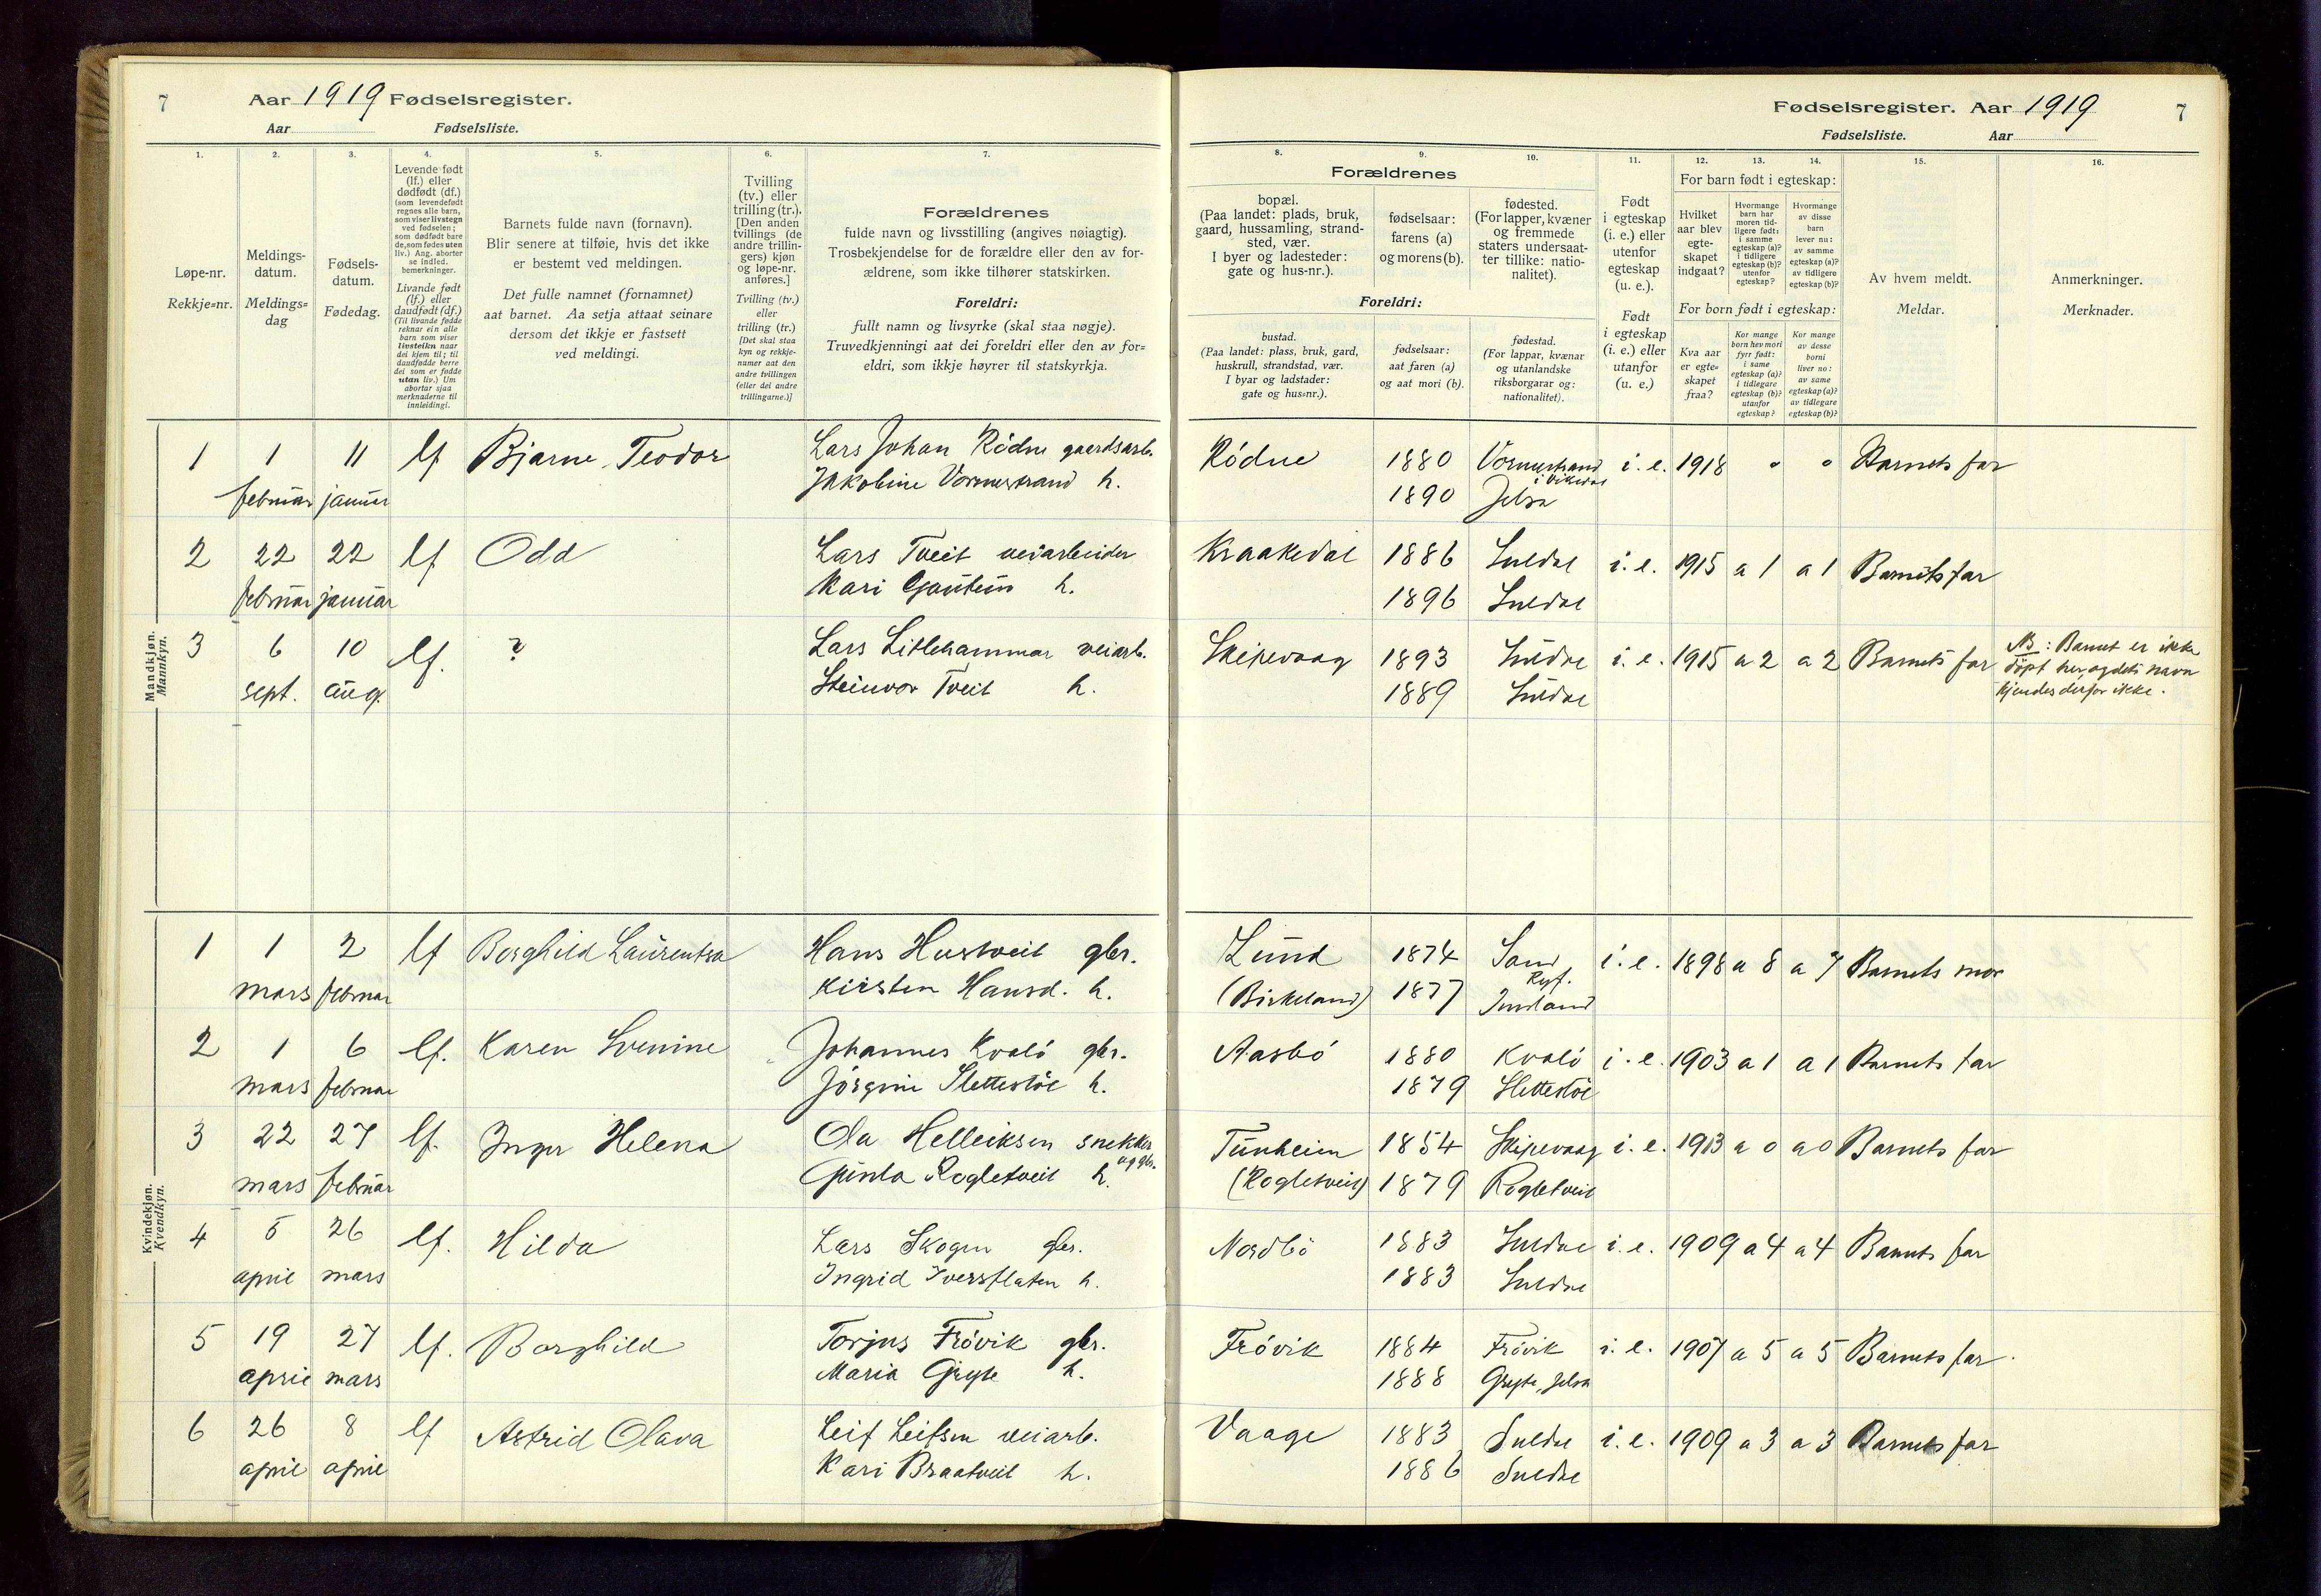 7 Aar 1919 Fødselsregister.
Aar Fødselsliste.
Fødselsregister. Aar 1919 7
Fødselsliste. Aar
1. 2. 3. 4. 5. 6. 7.
8. 9. 10. 11. 12. 13. 14. 15. 16.
Løpe-nr.
Rekkje=nr.
Meldings-
datum.
Meldings=
dag
Fødsels-
datum.
Fødedag.
Levende født
(lf.) eller
dødfødt (df.)
(som levendefødt
regnes alle barn,
som viser livstegn
ved fødselen;
som dødfødt bare
de, som fødes uten
liv.) Ang. aborter
se indled.
bemerkninger.
Livande født
(lf.) eller
daudfødt (df.)
(Til livande fødde
reknar ein alle
barn som viser
livsteikn naar
dei kjem til; til
daudfødde berre
dei som er fødde
utan liv.) Um
abortar sjaa
merknaderne til
innleidingi.
Barnets fulde navn (fornavn).
Blir senere at tilføie, hvis det ikke
er bestemt ved meldingen.
Det fulle namnet (fornamnet)
aat barnet. Aa setja attaat seinare
dersom det ikkje er fastsett
ved meldingi.
Tvilling
(tv.) eller
trilling (tr.).
[Den anden
tvillings (de
andre trillin-
gers) kjøn
og løpe-nr.
anføres.]
Tvilling (tv.)
eller
trilling (tr.)
[Det skal staa
kyn og rekkje-
numer aat den
andre tvillingen
(eller dei andre
trillingarne.)]
Forældrenes
fulde navn og livsstilling (angives nøiagtig).
Trosbekjendelse for de forældre eller den av for-
ældrene, som ikke tilhører statskirken.
Foreldri:
fullt namn og livsyrke (skal staa nøgje).
Truvedkjenningi aat dei foreldri eller den av for=
eldri, som ikkje høyrer til statskyrkja.
Forældrenes
bopæl.
(Paa landet: plads, bruk,
gaard, hussamling, strand-
sted, vær.
I byer og ladesteder:
gate og hus-nr.).
fødselsaar:
farens (a)
og morens (b).
fødested.
(For lapper, kvæner
og fremmede
staters undersaat-
ter tillike: natio-
nalitet).
Foreldri:
bustad.
(Paa landet: plass, bruk, gard,
huskrull, strandstad, vær.
I byar og ladstader:
gate og hus=nr.).
fødselsaar:
aat faren (a)
og aat mori (b).
fødestad.
(For lappar, kvænar
og utanlandske
riksborgarar og:
nationalitet).
Født
i egteskap
(i. e.) eller
utenfor
egteskap
(u. e.).
Født
i egteskap
(i. e.) eller
utanfor
(u. e.)
For barn født i egteskap:
Hvilket
aar blev
egte-
skapet
indgaat?
Hvormange
barn har
moren tid-
ligere født:
i samme
egteskap (a)?
i tidligere
egteskap (b)?
utenfor
egteskap?
Hvormange
av disse
barn
lever nu:
av samme
egteskap (a)?
av tidligere
egteskap (b)?
For born født i egteskap:
Kva aar
er egte=
skapet
fraa?
Kor mange
born hev mori
fyrr født:
i same
egteskap (a)?
i tidlegare
egteskap (b)?
utanfor
egteskap?
Kor mange
av desse
borni
liver no:
av same
egteskap (a)?
av tidlegare
egteskap (b)?
Av hvem meldt.
Meldar.
Anmerkninger.
Merknader.
Mandkjøn.
Mannkyn.
1 1 11 lf Bjarne Teodor Lars Johan Rødne gaardsarb. Rødne 1880 Vormestrand i. e. 1918 o o Barnets far
i Vikedal
februar januar Jakobine Vormestrand h. 1890 Jelsa
2 22 22 lf Odd Lars Tveit veiarbeider Kraakedal 1886 Suldal i. e. 1915 a 1 a 1 Barnets far
februar januar Kari Gautun h. 1896 Suldal
3 6 10 lf. ? Lars Litlehammar veiarb. Skipevaag 1893 Suldal i. e. 1915 a 2 a 2 Barnets far NB: Barnet er ikke
døpt her, og dets navn
sept. aug. Steinvor Tveit h. 1889 Suldal kjendes derfor ikke.
Kvindekjøn.
Kvendkyn.
1 1 2 lf Borghild Laurentsa Hans Hustveit gbr. Lund 1874 Sand i. e. 1898 a 8 a 7 Barnets mor
Ryf.
mars februar Kirsten Hansd. h. (Birkeland) 1877 Imsland
2 1 6 lf. Karen Svenine Johannes Kvalø gbr. Aasbø 1880 Kvalø i. e. 1903 a 1 a 1 Barnets far
mars februar Jørgine Slettestøl h. 1879 Slettestøl
3 22 27 lf. Inger Helena Ola Helleiksen snekker Tunheim 1854 Skipevaag i. e. 1913 a 0 a 0 Barnets far
og gbr.
mars februar Gunla Rogletveit h. (Rogletveit) 1879 Rogletveit
4 5 26 lf. Hilda Lars Skogen gbr. Nordbø 1883 Suldal i. e. 1909 a 4 a 4 Barnets far
april mars Ingrid Iversflaten h. 1883 Suldal
5 19 27 lf. Borghild Torjus Frøvik gbr. Frøvik 1884 Frøvik i. e. 1907 a 5 a 5 Barnets far.
april mars Maria Gryte h. 1888 Gryte, Jelsa
6 26 8 lf Astrid Olava Leif Leifsen veiarb. Vaage 1883 Suldal i. e. 1909 a 3 a 3 Barnets far
april april Kari Braatveit h. 1886 Suldal